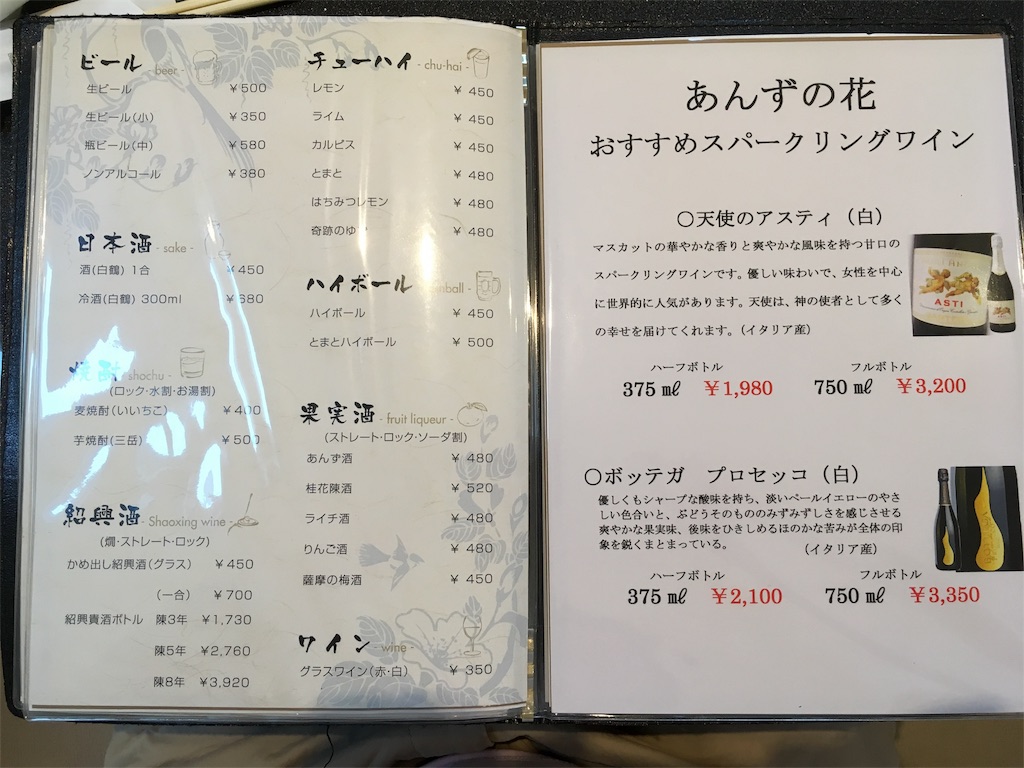 ビール - beer -
生ビール ¥500
生ビール(小) ¥350
瓶ビール(中) ¥580
ノンアルコール ¥380
日本酒 - sake -
酒(白鶴) 1合 ¥450
冷酒(白鶴) 300ml ¥680
焼酎 - shochu -
(ロック・水割・お湯割)
麦焼酎(いいちこ) ¥400
芋焼酎(三岳) ¥500
紹興酒 - Shaoxing wine -
(燗・ストレート・ロック)
かめ出し紹興酒(グラス) ¥450
(一合) ¥700
紹興貴酒ボトル 陳3年 ¥1,730
陳5年 ¥2,760
陳8年 ¥3,920
チューハイ - chu-hai -
レモン ¥450
ライム ¥450
カルピス ¥450
とまと ¥480
はちみつレモン ¥480
奇跡のゆず ¥480
ハイボール
ハイボール ¥450
とまとハイボール ¥500
果実酒 - fruit liqueur -
(ストレート・ロック・ソーダ割)
あんず酒 ¥480
桂花陳酒 ¥520
ライチ酒 ¥480
りんご酒 ¥480
薩摩の梅酒 ¥450
ワイン - wine -
グラスワイン(赤・白) ¥350
あんずの花
おすすめスパークリングワイン
○天使のアスティ(白)
マスカットの華やかな香りと爽やかな風味を持つ甘口の
スパークリングワインです。優しい味わいで、女性を中心
に世界的に人気があります。天使は、神の使者として多く
の幸せを届けてくれます。(イタリア産)
ASTI
ハーフボトル フルボトル
375㎖ ¥1,980 750㎖ ¥3,200
○ボッテガ プロセッコ(白)
優しくもシャープな酸味を持ち、淡いペールイエローのやさ
しい色合いと、ぶどうそのもののみずみずしさを感じさせる
爽やかな果実味、後味をひきしめるほのかな苦みが全体の印
象を鋭くまとまっている。 (イタリア産)
ハーフボトル フルボトル
375㎖ ¥2,100 750㎖ ¥3,350